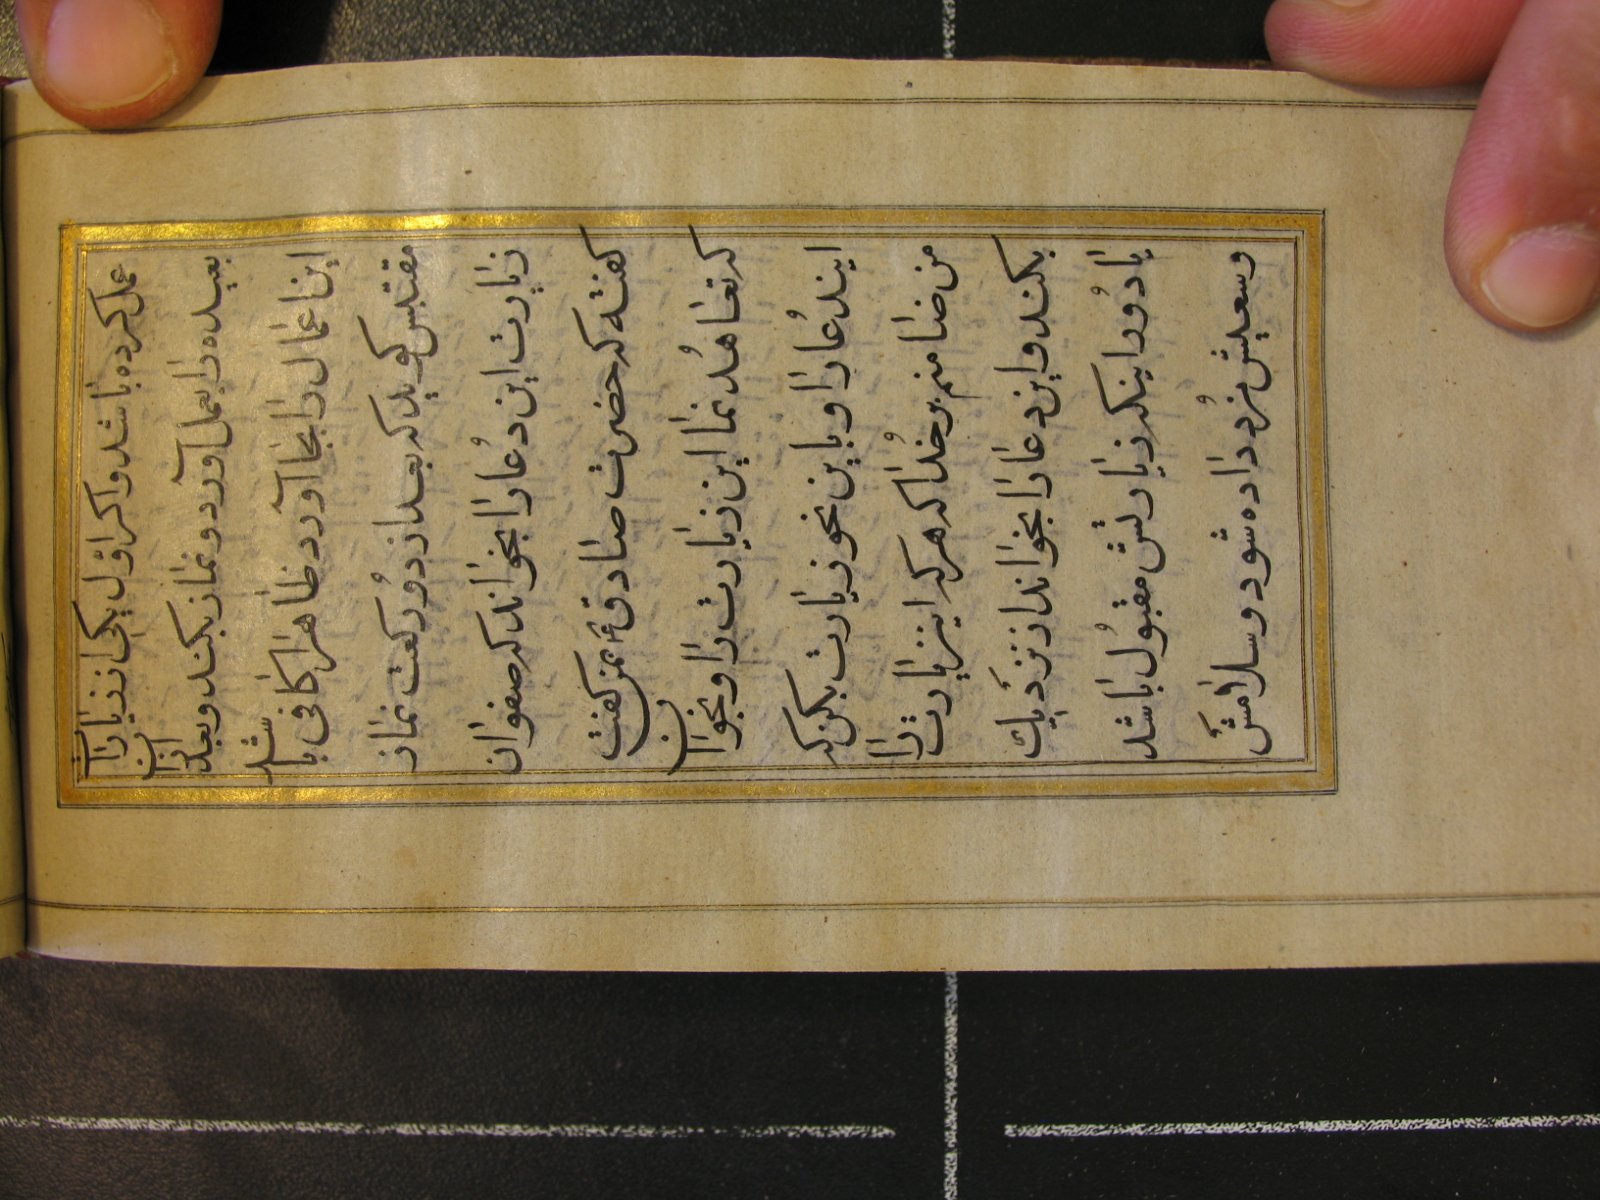 عمل کرده باشد و اکر اوّل یکی از زیارات
بعیده را بعمل آورد و نماز بکند و بعد ازان
این اعمال را بجا آورد ظاهرا کافی باشد
مقتبس کوید که بعد از دو رکعت نماز
زیارت این دُعا را بخواند که صفوان
کفته که حضرت صادق ع بمن کفت
که تعاهُد نما این زیارت را و بخوان
این دُعا را و باین نحو زیارت بکن که
من ضامنم بر خُدا که هر که این زیارت را
بکند و این دعا را بخواند از نزدیک
یا دُور اینکه زیارتش مقبُول باشد
و سعیش مزد داده شود و سلامش